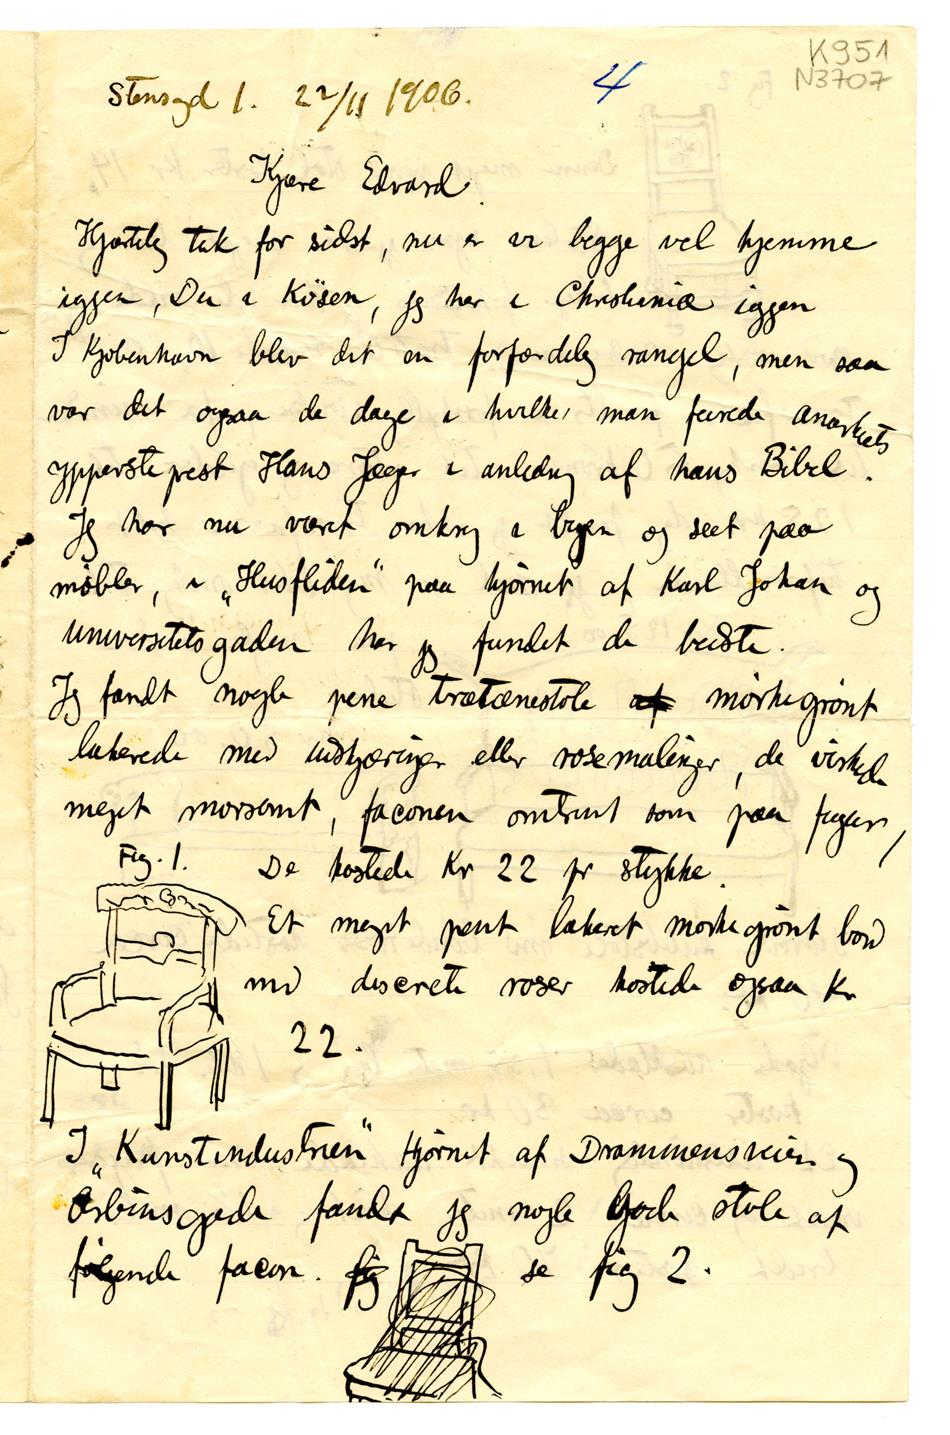 K951
N3707
4
Stensgd 1. 22/11 1906.
Kjære Edvard.
Hjærtelig tak for sidst, nu er vi begge vel hjemme
iggen, Du i Kösen, jeg her i Christiania iggen
I Kjøbenhavn blev det en forfærdelig rangel, men saa
var det ogsaa de dage i hvilke man feirede anarkiets
ypperstepræst Hans Jæger i anledng af hans Bibel.
Jeg har nu været omkrng i byen og seet paa
møbler, i „Husfliden" paa hjørnet af Karl Johan og
Universitetsgaden har jeg fundet de bedste.
Jeg fandt nogle pene trætænestole af mørkegrønt
lakerede med udskjæringer eller rosemalinger, de virkede
meget morsomt, faconen omtrent som paa figuren,
Fig. 1.
De kostede Kr 22 pr stykke.
Et meget pent lakeret mørkegrønt bord
med discrete roser kostede ogsaa Kr
22.
I „Kunstindustrien" Hjørnet af Drammensveien og
Arbinsgade fandt jeg nogle gode stole af
følgende facon. fig se fig 2.